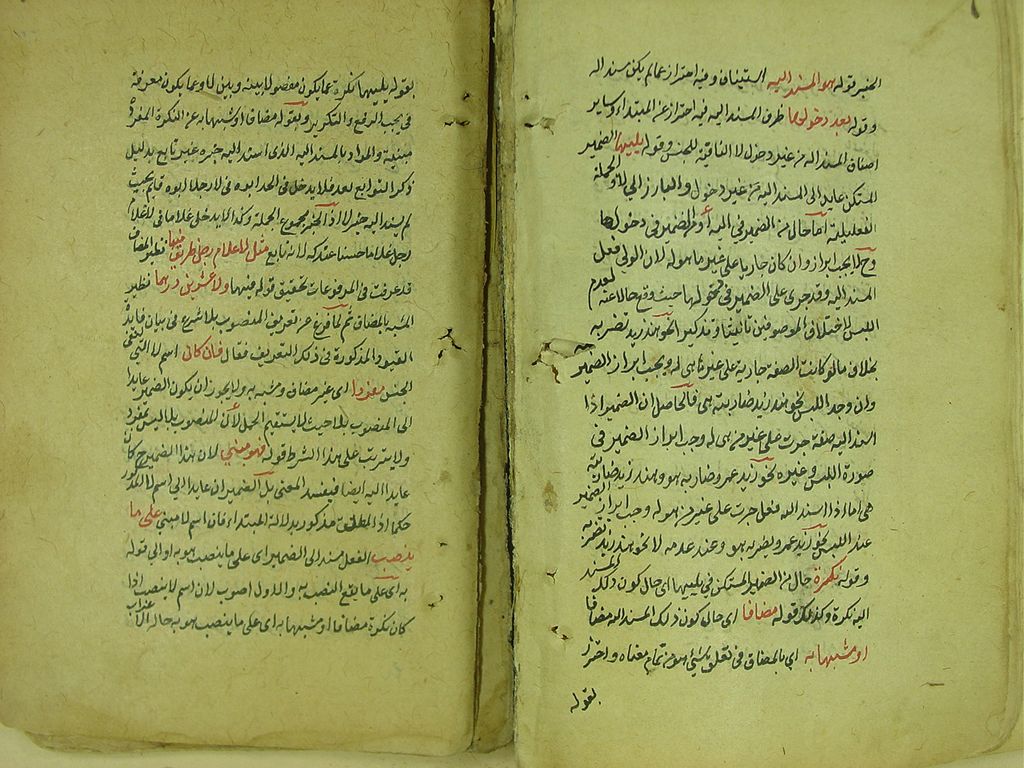 الخبر قوله هو المسند اليه استيناف وفيه احتراز عما لم يكن مسندا اليه
وقوله بعد دخولها ظرف المسند اليه فيه احتراز عن المبتداء وساير
اصناف المسند اليه من غير دخول لا النافية للجنس وقوله يليها الضمير
المستكن عايد الى المسند اليه من غير دخول والبارز الى لا والجملة
الفعلية اما حال من الضمير في اليه او من الضمير في دخولها
وح لا يجب ابرازه وان كان جاريا على غير ما هو له لان الولي فعل
المسند اليه وقد جرى على الضمير في دخولها حيث وقع حالا عنه لعدم
اللبس لاختلاف الموصوفين تانيثا وتذكيرا نحو هند زيد تضربه
بخلاف ما لو كانت الصفة جارية على غير ما هي له ويجب ابراز الضمير
وان وجد اللبس نحو هند زيد ضاربته هي فالحاصل ان الضمير اذا
اسند اليه صفة جرت على غير من هي له وجب ابراز الضمير في
صورة اللبس وغيره نحو زيد عمرو ضاربه هو وهند زيد ضاربته
هي اما اذا اسند اليه فعل جرت على غير من هو له وجب ابراز الضمير
عند اللبس نحو زيد عمرو يضربه هو وعند عدمه لا نحو هند زيد تضربه
وقوله نكرة حال من الضمير المستكن في يليها اى حال كون ذلك المسند
اليه نكرة وكذلك قوله مضافا اى حال كون ذلك المسند اليه مضافا
او مشبها به اي بالمضاف في تعلقه بشئ هو من تمام معناه واحترز
بقوله
بقوله يليها نكرة عما يكون مفصولا بينه وبين لا وعما يكون معرفة
فيجب الرفع والتكرير وبقوله مضافا او مشبها به عن النكرة المفردة
مبنية والمراد بالمسند اليه الذى اسند اليه خبره غير تابع بدليل
ذكر التوابع بعد فلا يدخل في الحد ابوه في لا رجل ابوه قايم بحيث
لم يسند اليه خبر لا اذ الخبر مجموع الجملة وكذا لا يدخل غلاما في لا غلام
رجل غلاما حسنا عندك لانه تابع مثل لا غلام رجل ظريف فيها نظير المضاف
قد عرفت في المرفوعات تحقيق قوله فيها ولا عشرين درهما نظير
المشبه بالمضاف ثم لما فرغ عن تعريف المنصوب بلا شرع في بيان فايدة
القيود المذكورة في ذلك التعريف فقال فان كان اسم لا التي لنفي
الجنس مفردا اى غير مضاف ومشبه به ولا يجوز ان يكون الضمير عايدا
الى المنصوب بلا حيث لا يستقيم الحمل لان المنصوب بلا ليس بمفرد
ولا يترتب على هذا الشرط قوله فهو مبني لان هذا الضمير ح كان
عايدا اليه ايضا فيفسد المعنى بل الضميران عايدا الى اسم لا المذكور
حكما اذ المطلق مذكور بدلالة المبتداء فان اسم لا مبني على ما
ينصب الفعل مسند الى الضمير اى على ما ينصب هو به او الى قوله
به اى على ما يقع النصب به والاول اصوب لان اسم لا ينصب اذا
كان نكرة مضافا او مشبها به اى على ما ينصب هو به حالة الاعراب